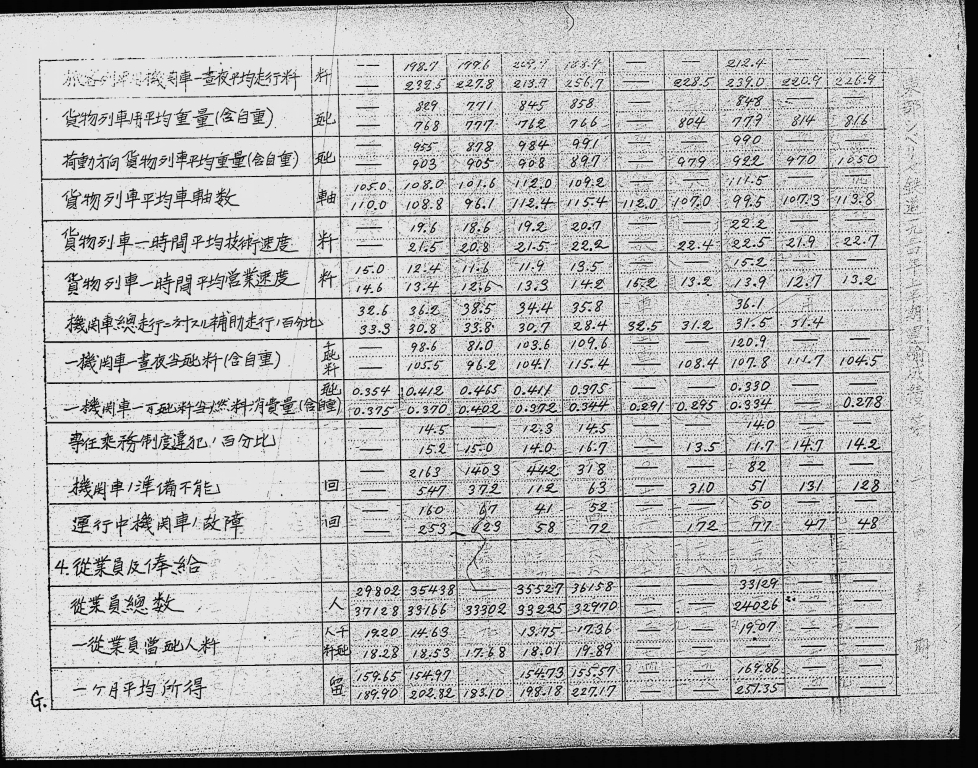 機関車一昼夜平均走行粁 粁 — 198.7 179.6 — — 212.4 — —
— 232.5 227.8 213.9 256.7 — 228.5 239.0 220.9 226.9
貨物列車用平均重量(含自重) 瓲 — 829 771 845 858 — — 848 — —
— 768 777 762 766 — 804 779 814 816
荷動方向貨物列車平均重量(含自重) 瓲 — 955 878 984 991 — — 990 — —
— 903 905 908 897 — 979 922 970 1050
貨物列車平均車軸数 軸 105.0 108.0 101.6 112.0 109.2 — — 111.5 — —
110.0 108.8 96.1 112.4 115.4 112.0 107.0 99.5 107.3 113.8
貨物列車一時間平均技術速度 粁 — 19.6 18.6 19.2 20.7 — — 22.2 — —
— 21.5 20.8 21.5 22.2 — 22.4 22.5 21.9 22.7
貨物列車一時間平均営業速度 粁 15.0 12.4 11.6 11.9 13.5 — — 15.2 — —
14.6 13.4 12.6 13.3 14.2 15.2 13.2 13.9 12.7 13.2
機関車總走行ニ対スル補助走行ノ百分比 32.6 36.2 38.5 34.4 35.8 36.1
33.3 30.8 33.8 30.7 28.4 32.5 31.2 31.5 31.4
一機関車一昼夜当瓲粁(含自重) 千瓲粁 — 98.6 81.0 103.6 109.6 — 120.9 — —
— 105.5 96.2 104.1 115.4 — 108.4 107.8 111.7 104.5
一機関車一万瓲粁当燃料消費量(含自重) 瓲 0.354 0.412 0.465 0.411 0.375 — — 0.330 — —
0.375 0.370 0.402 0.372 0.344 0.291 0.295 0.334 — 0.278
専任乗務制度違犯ノ百分比 — 14.5 — 12.3 14.5 — — 14.0 — —
— 15.2 15.0 14.0 16.7 — 13.5 11.7 14.7 14.2
機関車ノ準備不能 回 — 2163 1403 442 318 — — 82 — —
— 547 372 112 63 — 310 51 131 128
運行中機関車ノ故障 回 — 160 67 41 52 — — 50 — —
— 253 123 58 72 — 172 77 47 48
4.從業員及俸給
從業員總数 人 29802 35438 — 35527 36158 — — 33129 — —
37128 33166 33302 33225 32970 — — 24026 — —
一從業員當瓲人粁 千人瓲粁 19.20 14.63 13.75 17.36 — — 19.07 — —
18.28 18.53 17.68 18.01 19.89 — — — — —
一ヶ月平均所得 留 159.65 154.97 154.73 155.57 — — 169.86 — —
189.90 202.82 183.10 198.18 227.17 — — 251.35 — —
G.